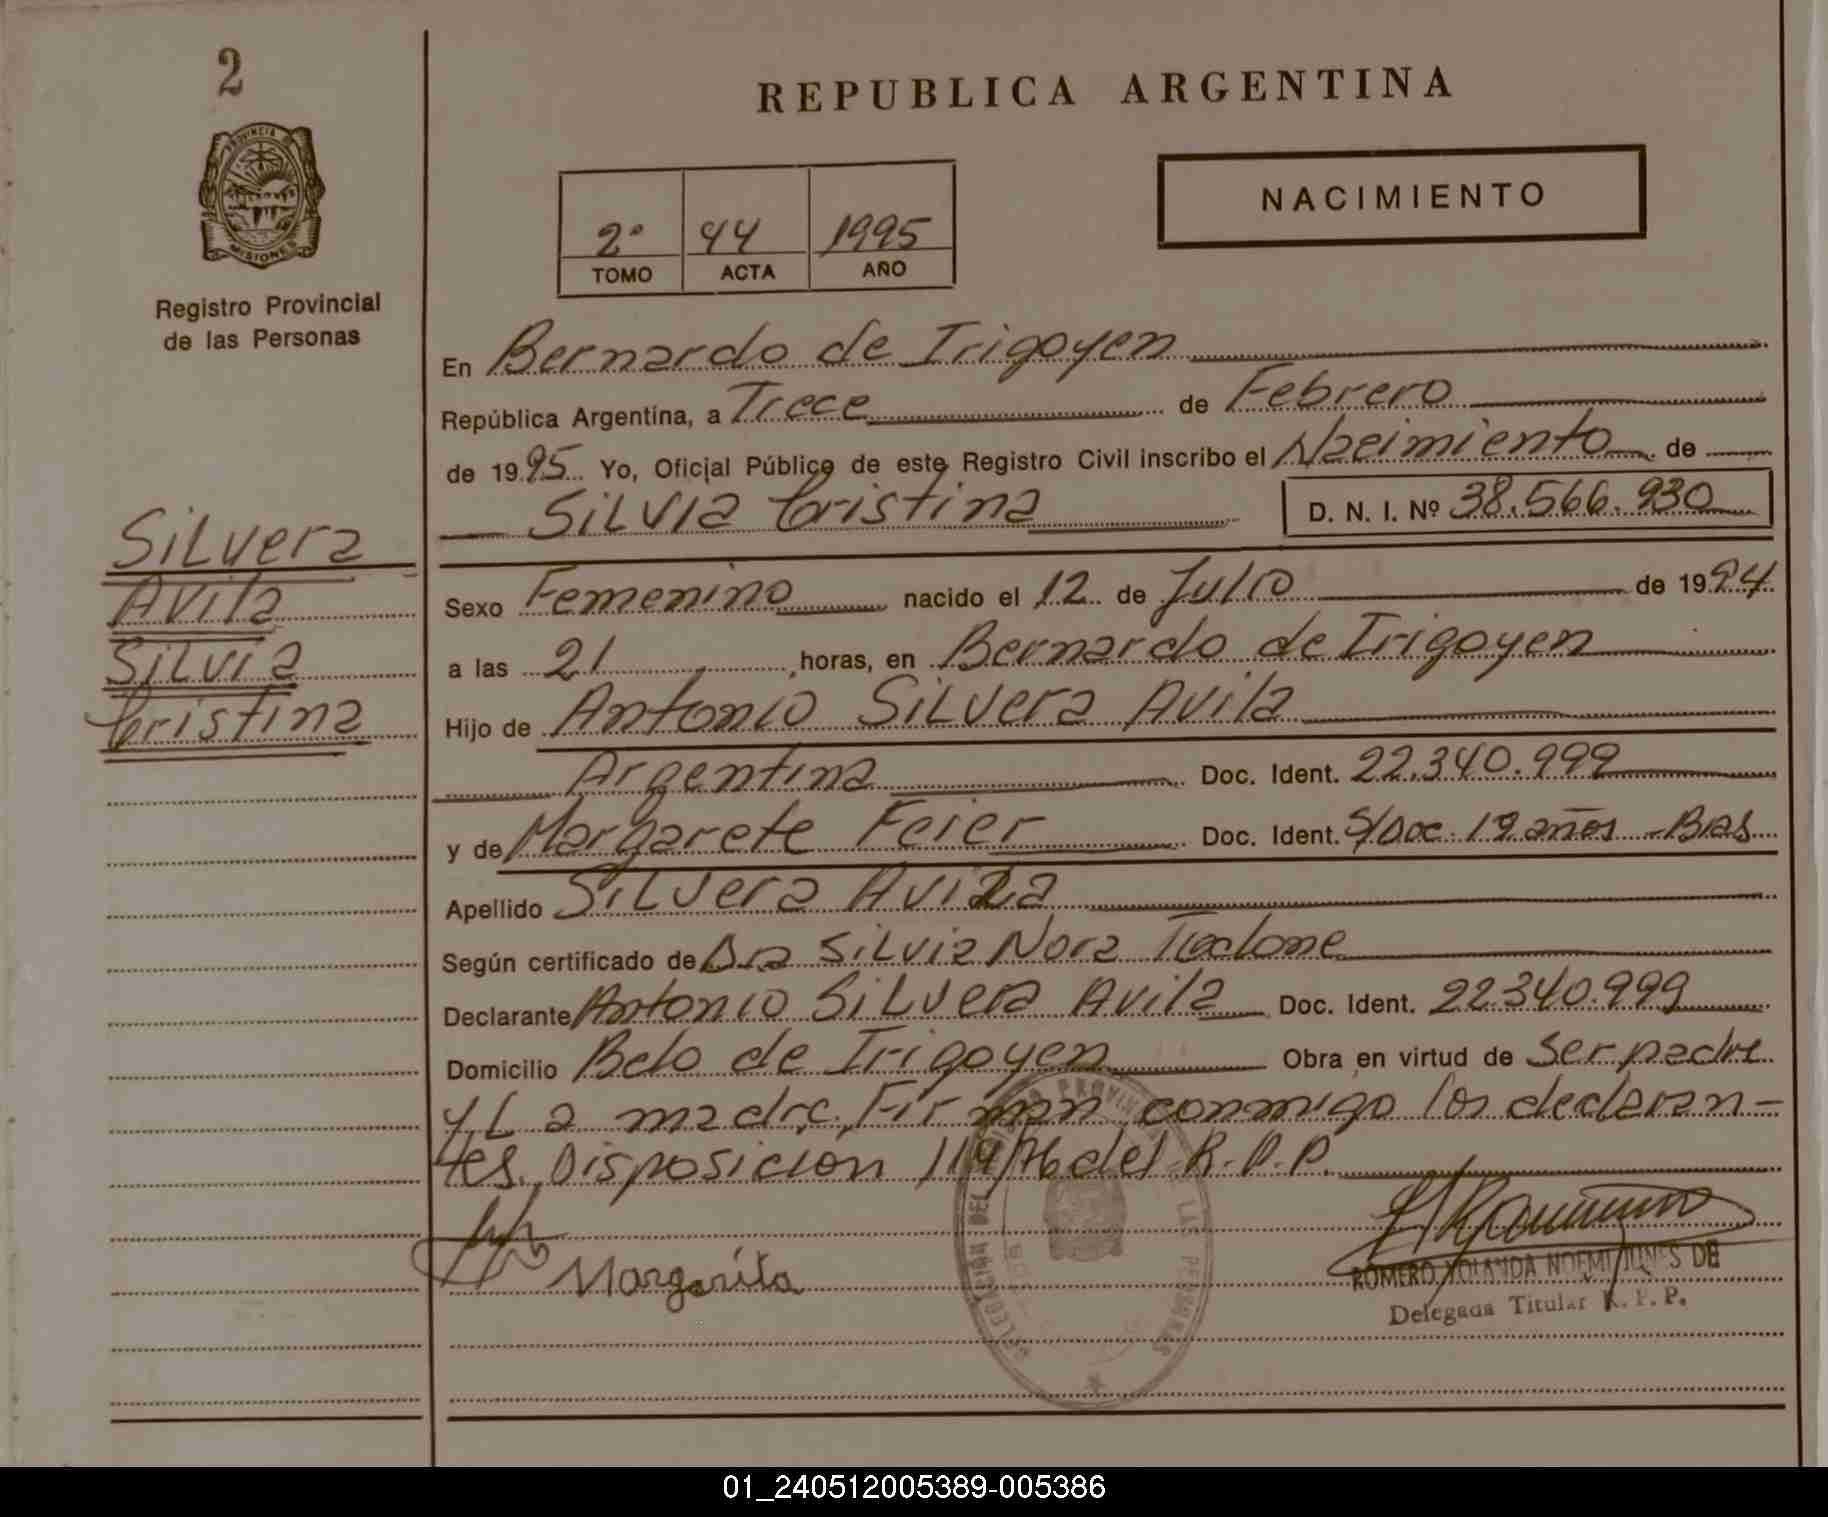 2
REPUBLICA ARGENTINA
PROVINCIA DE
MISIONES
Registro Provincial
de las Personas
2º 44 1995
TOMO ACTA AÑO
NACIMIENTO
En Bernardo de Irigoyen
República Argentina, a Trece de Febrero
de 1995 Yo, Oficial Público de este Registro Civil inscribo el Nacimiento de
Silvia Cristina D. N. I. Nº 38.566.930
Silvera
Avila
Silvia
Cristina
Sexo Femenino nacido el 12 de Julio de 1994
a las 21 horas, en Bernardo de Irigoyen
Hijo de Antonio Silvera Avila
Argentina Doc. Ident. 22.340.999
y de Margarete Feier Doc. Ident. S/Doc 19 años - Bras
Apellido Silvera Avila
Según certificado de Dra Silvia Nora
Declarante Antonio Silvera Avila Doc. Ident. 22.340.999
Domicilio Bdo de Irigoyen Obra en virtud de ser padre
y La madre. Firman conmigo los declaran-
tes. Disposicion 119/76 del R.P.P.
Margarita
ROMERO YOLANDA NOEMI DE
Delegada Titular R. P. P.
01_240512005389-005386